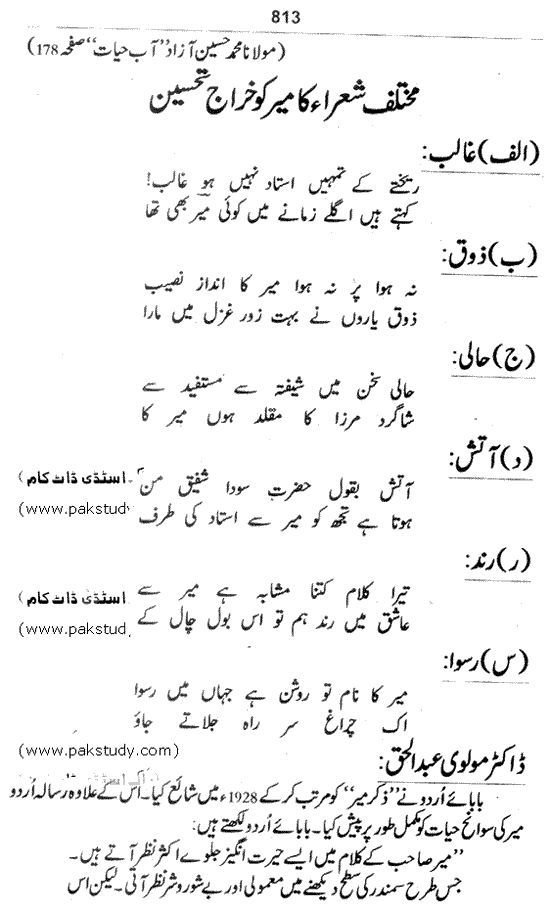 813
(مولانا محمد حسین آزاد ”آب حیات“ صفحہ 178)
مختلف شعراء کا میر کو خراج تحسین
(الف) غالب:
ریختے کے تمہیں استاد نہیں ہو غالب!
کہتے ہیں اگلے زمانے میں کوئی میر بھی تھا
(ب) ذوق:
نہ ہوا پر نہ ہوا میر کا انداز نصیب
ذوق یاروں نے بہت زور غزل میں مارا
(ج) حالی:
حالی سخن میں شیفتہ سے مستفید ہے
شاگرد مرزا کا مقلد ہوں میر کا
(د) آتش:
آتش بقول حضرت سودا شفیق من
اسٹڈی ڈاٹ کام)
ہوتا ہے تجھ کو میر سے استاد کی طرف
(www.pakstudy
(ر) رند:
تیرا کلام کتنا مشابہ ہے میر سے
اسٹڈی ڈاٹ کام)
عاشق میں رند ہم تو اس بول چال کے
(www.pakstudy
(س) رسوا:
میر کا نام تو روشن ہے جہاں میں رسوا
اک چراغ سر راہ جلاتے جاؤ
(www.pakstudy.com)
ڈاکٹر مولوی عبدالحق:
بابائے اُردو نے ”ذکر میر“ کو مرتب کر کے 1928ء میں شائع کیا۔ اس کے علاوہ رسالہ اُردو
میر کی سوانح حیات کو مکمل طور پر پیش کیا۔ بابائے اُردو لکھتے ہیں:
”میر صاحب کے کلام میں ایسے حیرت انگیز جلوے اکثر نظر آتے ہیں۔
جس طرح سمندر کی سطح دیکھنے میں معمولی اور بے شور و شر نظر آتی۔ لیکن اس